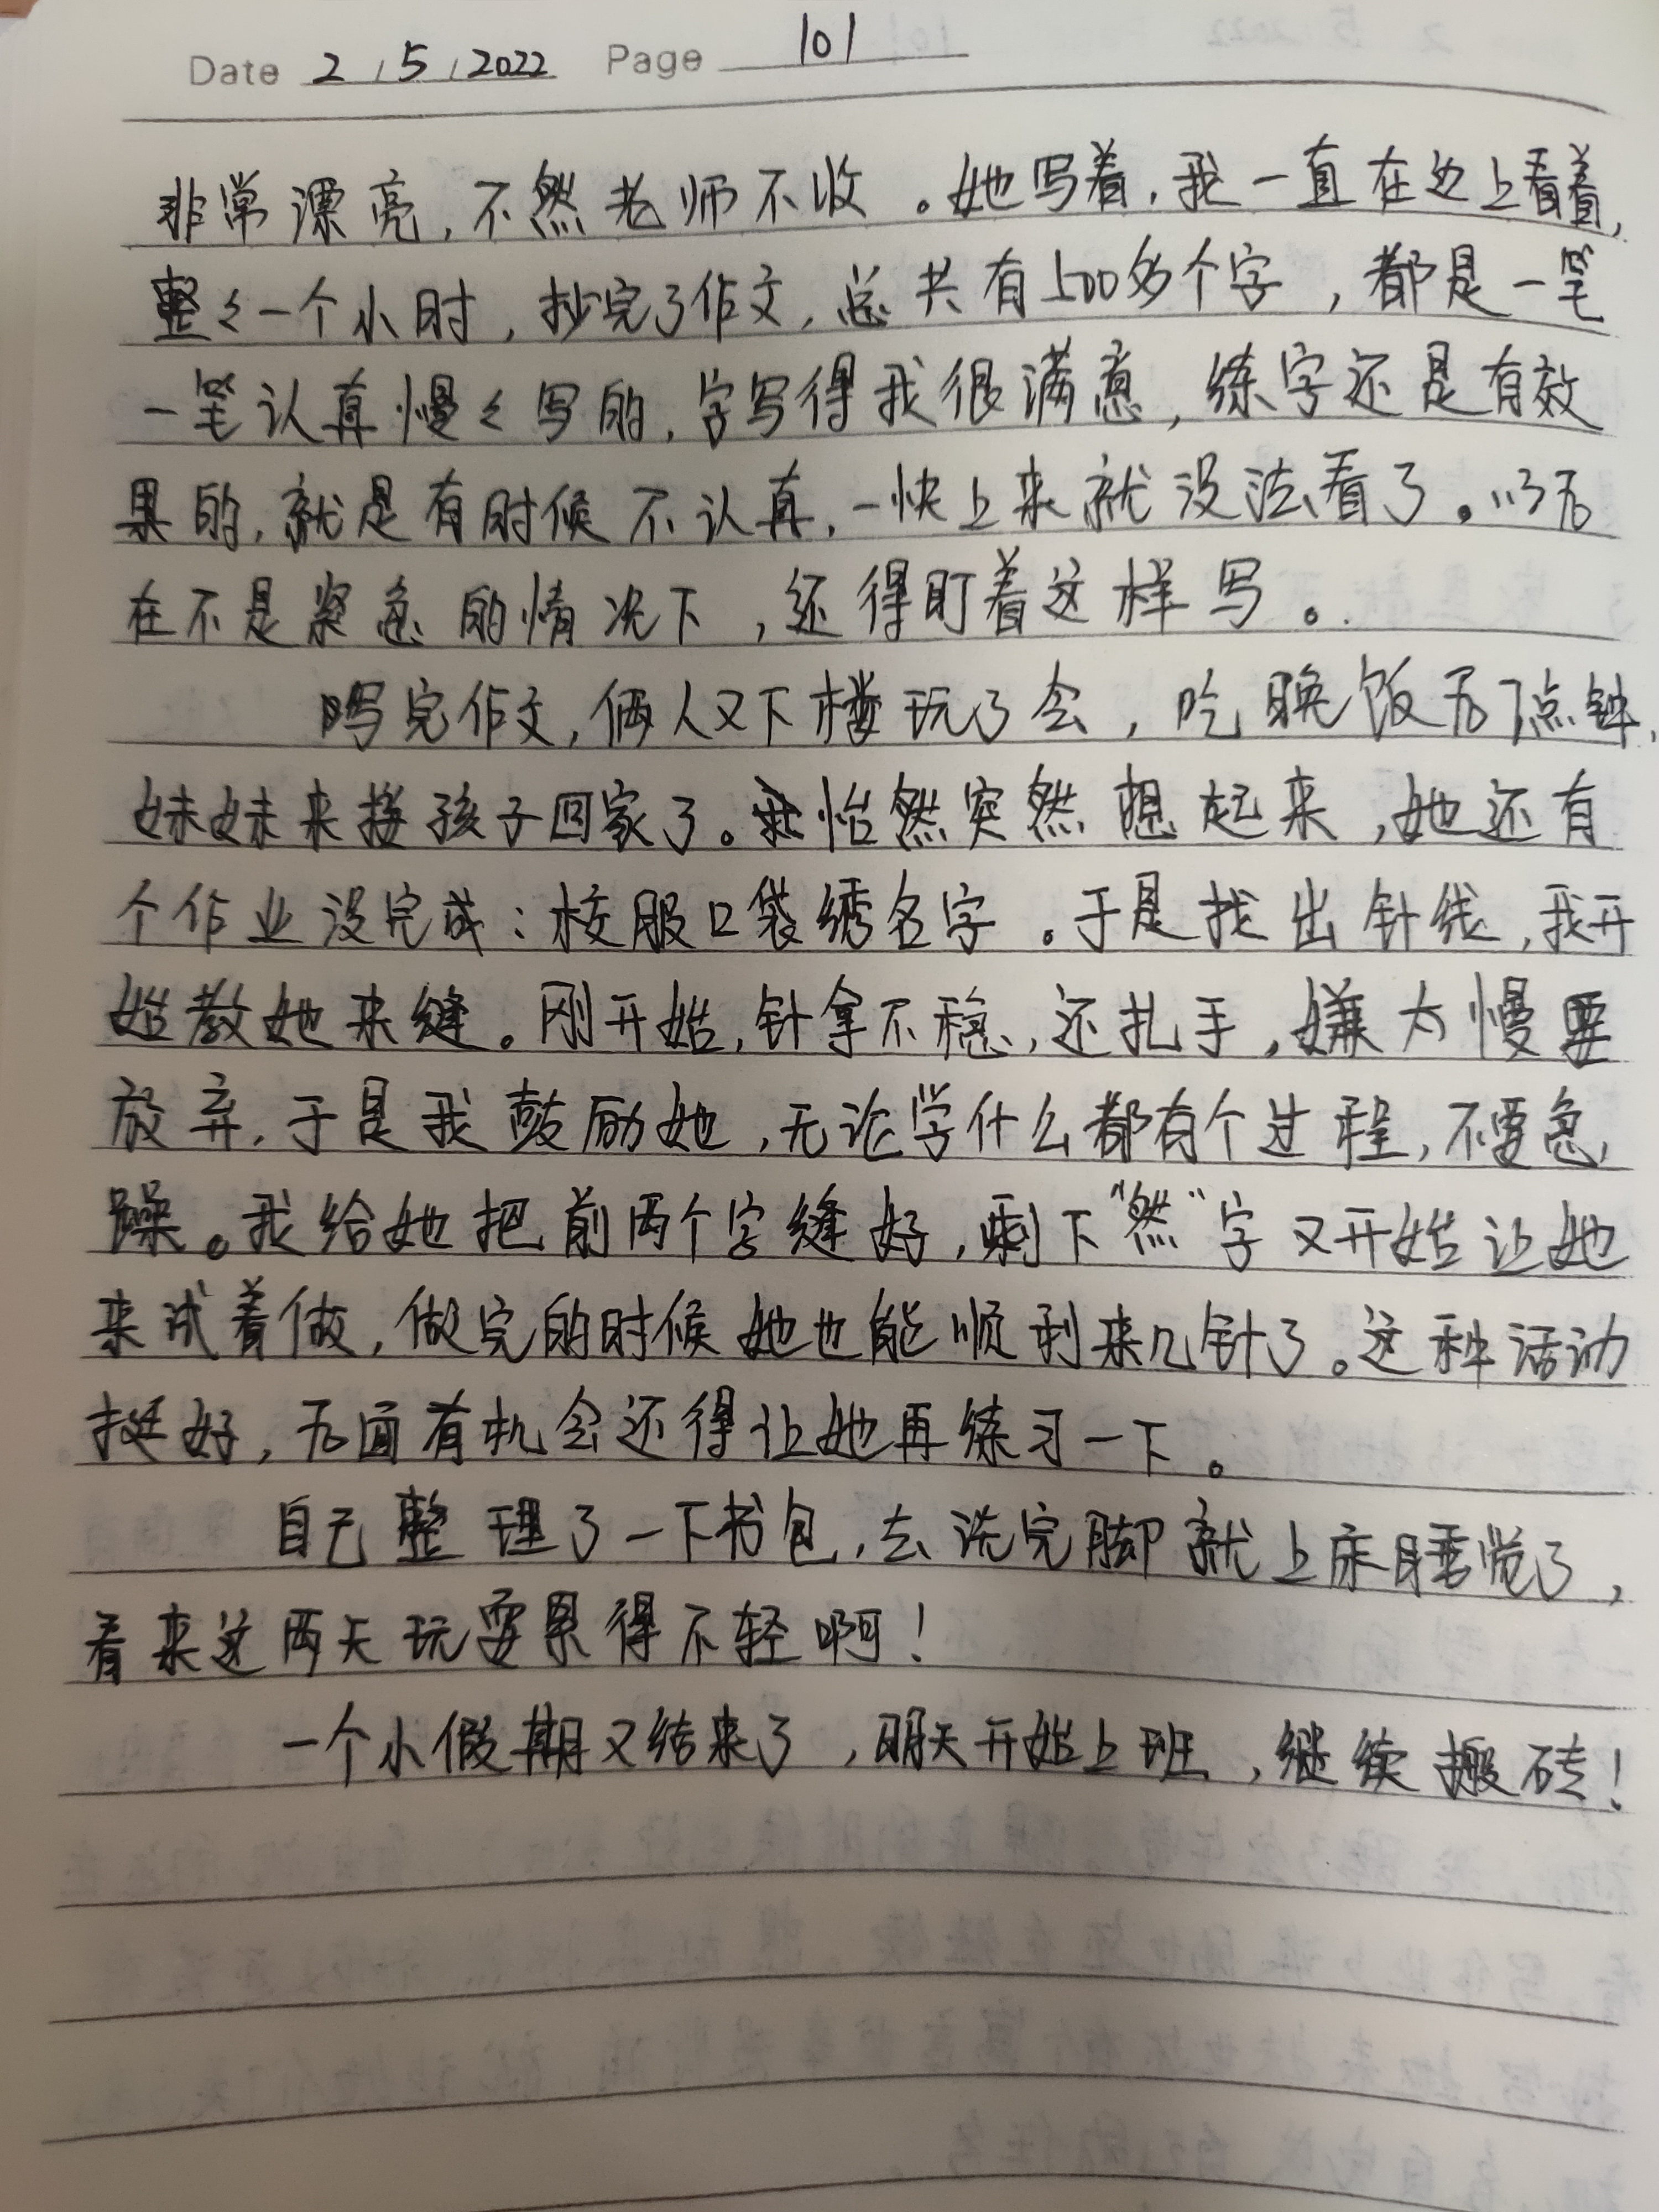 Date 2 / 5 / 2022 Page 101
非常漂亮,不然老师不收。她写着,我一直在边上看着,
整々一个小时,抄完了作文,总共有500多个字,都是一笔
一笔认真慢々写的,字写得我很满意,练字还是有效
果的,就是有时候不认真,一快上来就没法看了。以后
在不是紧急的情况下,还得盯着这样写。
写完作文,俩人又下楼玩了会,吃晚饭后7点钟,
妹妹来接孩子回家了。怡然突然想起来,她还有
个作业没完成:校服口袋绣名字。于是找出针线,我开
始教她来缝。刚开始,针拿不稳,还扎手,嫌太慢要
放弃,于是我鼓励她,无论学什么都有个过程,不要急
躁。我给她把前两个字缝好,剩下“然”字又开始让她
来试着做,做完的时候她也能顺利来几针了。这种活动
挺好,后面有机会还得让她再练习一下。
自己整理了一下书包,去洗完脚就上床睡觉了,
看来这两天玩耍累得不轻啊!
一个小假期又结束了,明天开始上班,继续搬砖!